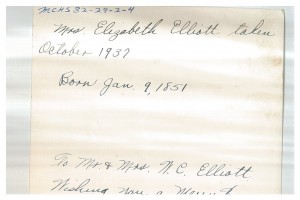 MCHS 82-29-2-4
Mrs. Elizabeth Elliott taken
October 1937
Born Jan. 9, 1851
To Mr. & Mrs. N.C. Elliott
Wishing you a